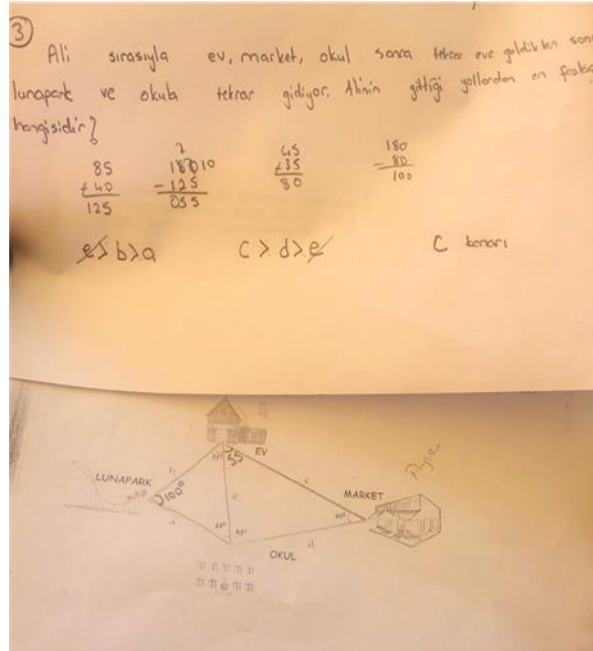 3
Ali sırasıyla ev, market, okul sonra tekrar eve geldikten
lunapark ve okula tekrar gidiyor. Alinin gittiği yollardan en
hangisidir?
85
+40
125
- 125
055
45
+35
80
180
- 80
100
e > b > a
c > d > e
C kenarı
EV
55
LUNAPARK
100°
MARKET
OKUL